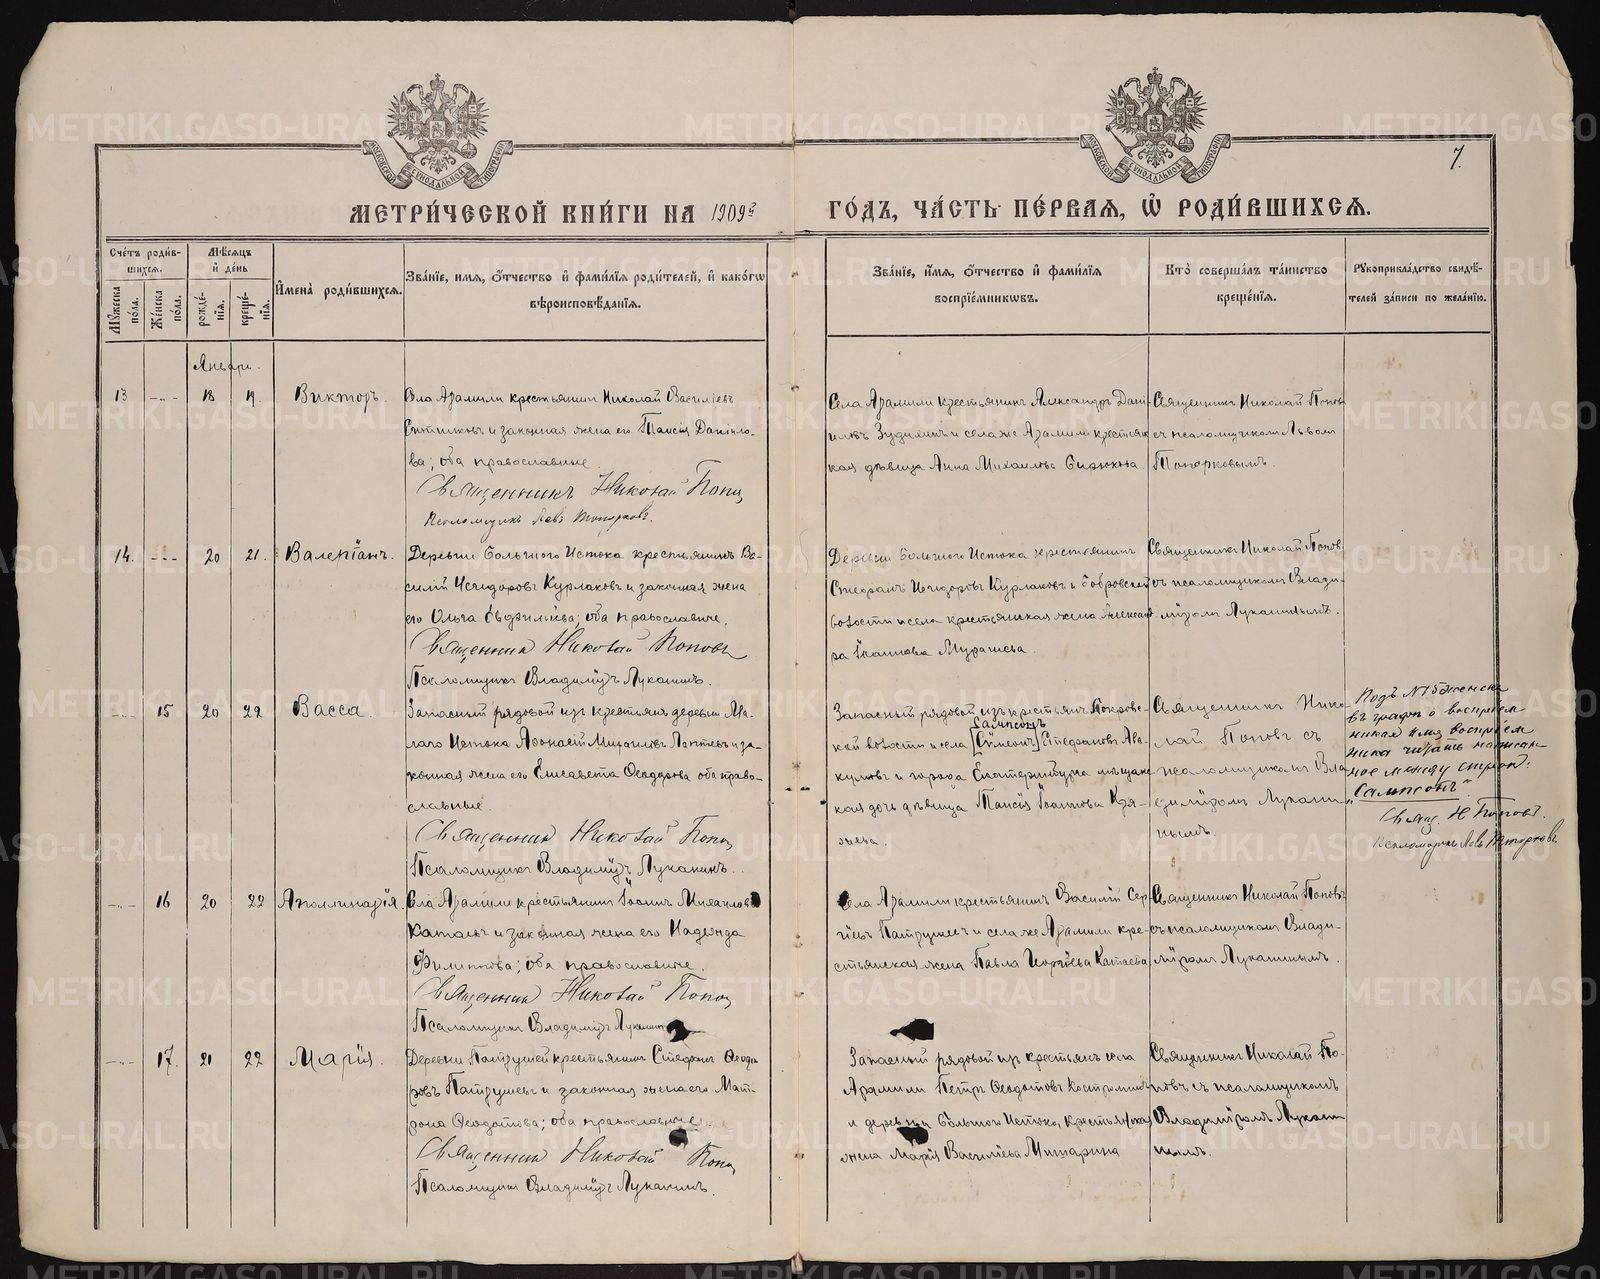 МЕТРИ́ЧЕСКОЙ КНИ́ГИ НА 1909 г
ГО́ДЪ, ЧА́СТЬ ПЕ́РВАЯ, Ѡ҆ РОДИ́ВШИХСЯ.
7.
МОСКОВСКОЙ СУНОДАЛЬНОЙ ТИПОГРАФІИ
МОСКОВСКОЙ СУНОДАЛЬНОЙ ТИПОГРАФІИ
Сче́тъ роди́вшихся.
Мужеска по́ла.
Же́нска по́ла.
Мѣ́сяцъ и҆ де́нь
рожде́нїя.
креще́нїя.
И҆мена̀ роди́вшихся.
Зва́нїе, и҆мя, ѻ҆́тчество и҆ фами́лїя роди́телей, и҆ како́гѡ вѣроисповѣ́данїя.
Зва́нїе, и҆́мя, ѻ҆́тчество и҆ фами́лїя воспрїе́мникѡвъ.
Кто̀ соверша́лъ та́инство креще́нїя.
Рукоприкла́дство свидѣ́телей за́писи по жела́нїю.
Январь.
13 18 19. Викторъ.
Села Арамили крестьянинъ Николай Василіевъ
и законная жена его Таисія Данило-
ва; оба православные.
Священникъ Николай Поповъ
Псаломщикъ Левъ Топорковъ.
Села Арамили крестьянинъ Александръ Дані-
иловъ Зудихинъ и села же Арамили крестьян
кая дѣвица Анна Михаилова
Священникъ Николай Поповъ
съ псаломщикомъ Львом
Топорковымъ.
14. 20 21. Валеріанъ.
Деревни Большого Истока крестьянинъ Ва-
силій Исидоровъ Курлаковъ и законная жена
его Ольга Евфиміева; оба православные.
Священникъ Николай Поповъ
Псаломщикъ Владиміръ Луканинъ.
Деревни Большого Истока крестьянинъ
Стефанъ Исидоровъ Курлаковъ и Бобровской
волости и села крестьянская жена Александ
ра Іоаннова Мурашева.
Священникъ Николай Поповъ
съ псаломщикомъ Влади-
міромъ Луканинымъ.
15 20 22 Васса.
Запасный рядовой изъ крестьянъ деревни Ма-
лаго Истока Афонасій Михаиловъ Лаптевъ и за-
конная жена его Елисавета Феодорова оба право-
славные.
Священникъ Николай Поповъ
Псаломщикъ Владиміръ Луканинъ.
Запасный рядовой изъ крестьянъ Покровс-
Сампсонъ
кой волости и села [Сѵмеонъ] Стефановъ Ава-
кумовъ и города Екатеринбурга мѣщанс
кая дочь дѣвица Таисія Іоаннова Кня-
зева.
Священникъ Нико
лай Поповъ съ
псаломщикомъ Вла
диміромъ Лукани
нымъ.
Подъ №15 женска
въ графѣ о воспріем
никахъ имя воспріем
ника читать написан-
ное между строк:
"Сампсонъ".
Свящ. Н Поповъ.
Псаломщикъ Левъ Топорковъ
16 20 22 Аполлинарія.
Села Арамили крестьянинъ Іоаннъ Михаиловъ
Катаевъ и законная жена его Надежда
Филиппова; оба православные.
Священникъ Николай Поповъ
Псаломщикъ Владиміръ Луканинъ
Села Арамили крестьянинъ Василій Сер-
гіевъ Патрушевъ и села же Арамили кре-
стьянская жена Павла Георгіева Катаева.
Священникъ Николай Поповъ
съ псаломщикомъ Влади-
міромъ Луканинымъ.
17. 21 22 Марія.
Деревни Патрушей крестьянинъ Стефанъ Феодо
ровъ Патрушевъ и законная жена его Мат-
рона Феодотова; оба православные.
Священникъ Николай Поповъ
Псаломщикъ Владиміръ Луканинъ.
Запасный рядовой изъ крестьянъ села
Арамили Петръ Феодотовъ Костроминъ
и деревни Большого Истока, крестьянская
жена Марія Васильева Митарина
Священникъ Николай По-
повъ съ псаломщикомъ
Владиміромъ Лукани
нымъ.
METRIKI.GASO-URAL.RU